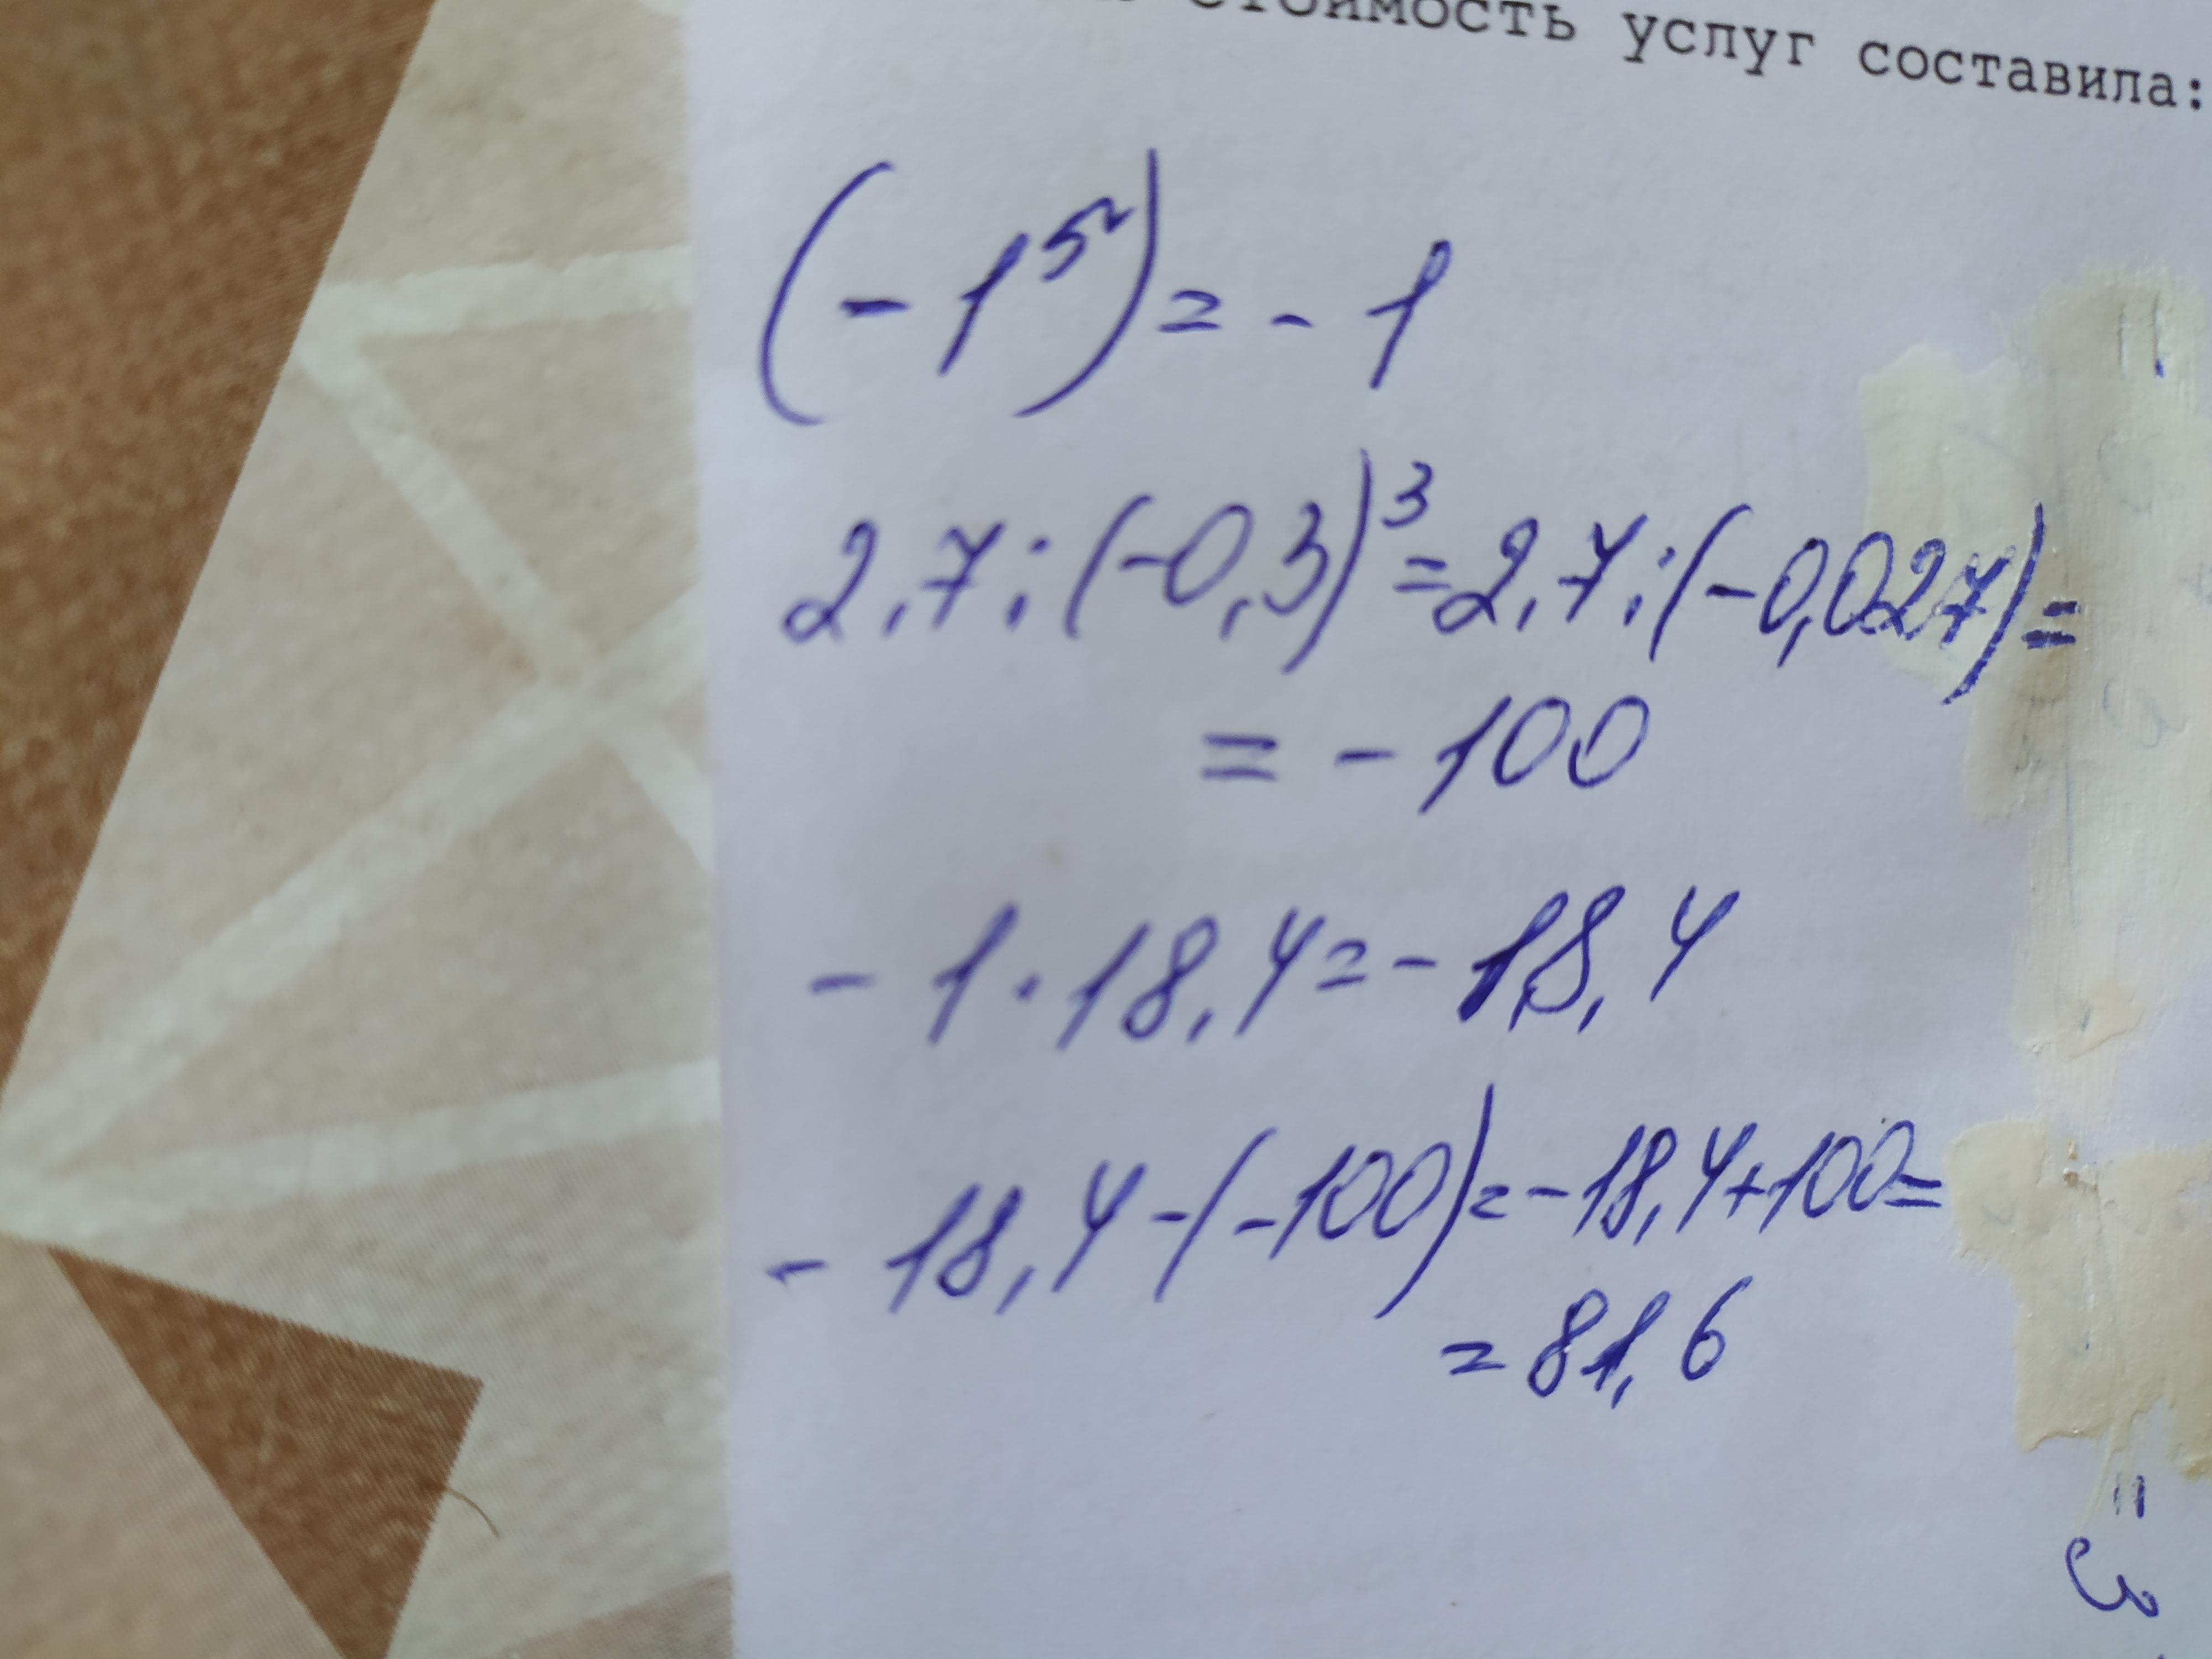 стоимость услуг составила:
(-1⁵)=-1
2,7:(-0,3)³=2,7:(-0,027)=
=-100
-1·18,4=-18,4
-18,4-(-100)=-18,4+100=
=81,6